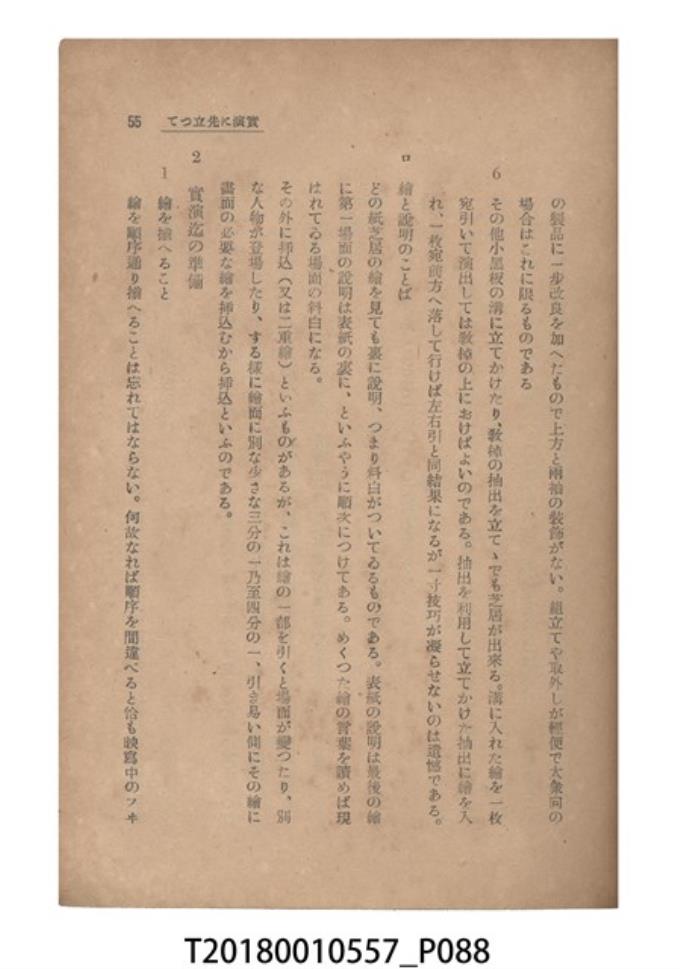 實演に先立つて 55
の製品に一步改良を加へたもので上方と兩袖の裝飾がない。組立てや取外しが輕便で大衆向の
場合はこれに限るものである
6 その他小黑板の溝に立てかけたり、敎椁の抽出を立てゝでも芝居が出來る。溝に入れた繪を一枚
宛引いて演出しては敎椁の上におけばよいのである。抽出を利用して立てかけた抽出に繪を入
れ、一枚宛前方へ落して行けば左右引と同結果になるが一寸技巧が凝らせないのは遺憾である。
ロ 繪と說明のことば
どの紙芝居の繪を見ても裏に說明、つまり科白がついてゐるものである。表紙の說明は最後の繪
に第一場面の說明は表紙の裏に、といふやうに順次につけてある。めくつた繪の言葉を讀めば現
はれてゐる場面の科白になる。
その外に挿込(又は二重繪)といふものがあるが、これは繪の一部を引くと場面が變つたり、別
な人物が登場したり、する樣に繪面に別な少さな三分の一乃至四分の一、引き易い側にその繪に
畫面の必要な繪を挿込むから挿込といふのである。
2 實演迄の準備
1 繪を揃へること
繪を順序通り揃へることは忘れてはならない。何故なれば順序を間違へると恰も映寫中のフヰ
T20180010557_P088